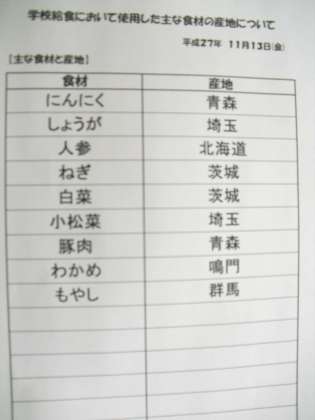 学校給食において使用した主な食材の産地について
平成27年 11月13日(金)
[主な食材と産地]
食材 産地
にんにく 青森
しょうが 埼玉
人参 北海道
ねぎ 茨城
白菜 茨城
小松菜 埼玉
豚肉 青森
わかめ 鳴門
もやし 群馬